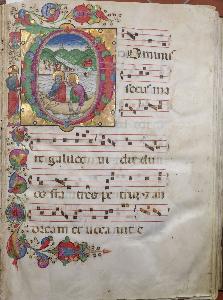 Dominus
secus ma
re galilee vidit du
os fratres petrum et an
dream et vocavit e